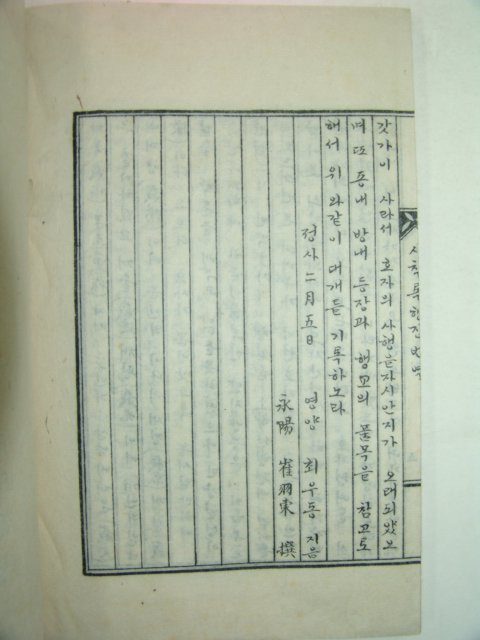 갓가이 사라서 효자의 사행을 자시 안지가 오래되얏고
며 또 동내 방내 등장과 행교의 품목을 참고로
해서 위와 같이 대개를 기록하노라
정사 二月 五日 영양 최우동 지음
永陽 崔羽東 撰